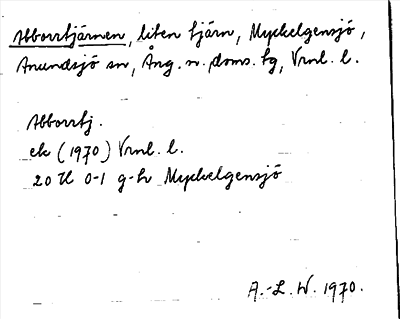 Abborrtjärnen, liten tjärn, Myckelgensjö,
Anundsjö sn, Ång. n. doms. tg, Vrnl. l.
Abborrtj.
ek (1970) Vrnl. l.
20 H 0-1 g-h Myckelgensjö
A.-L. W. 1970.